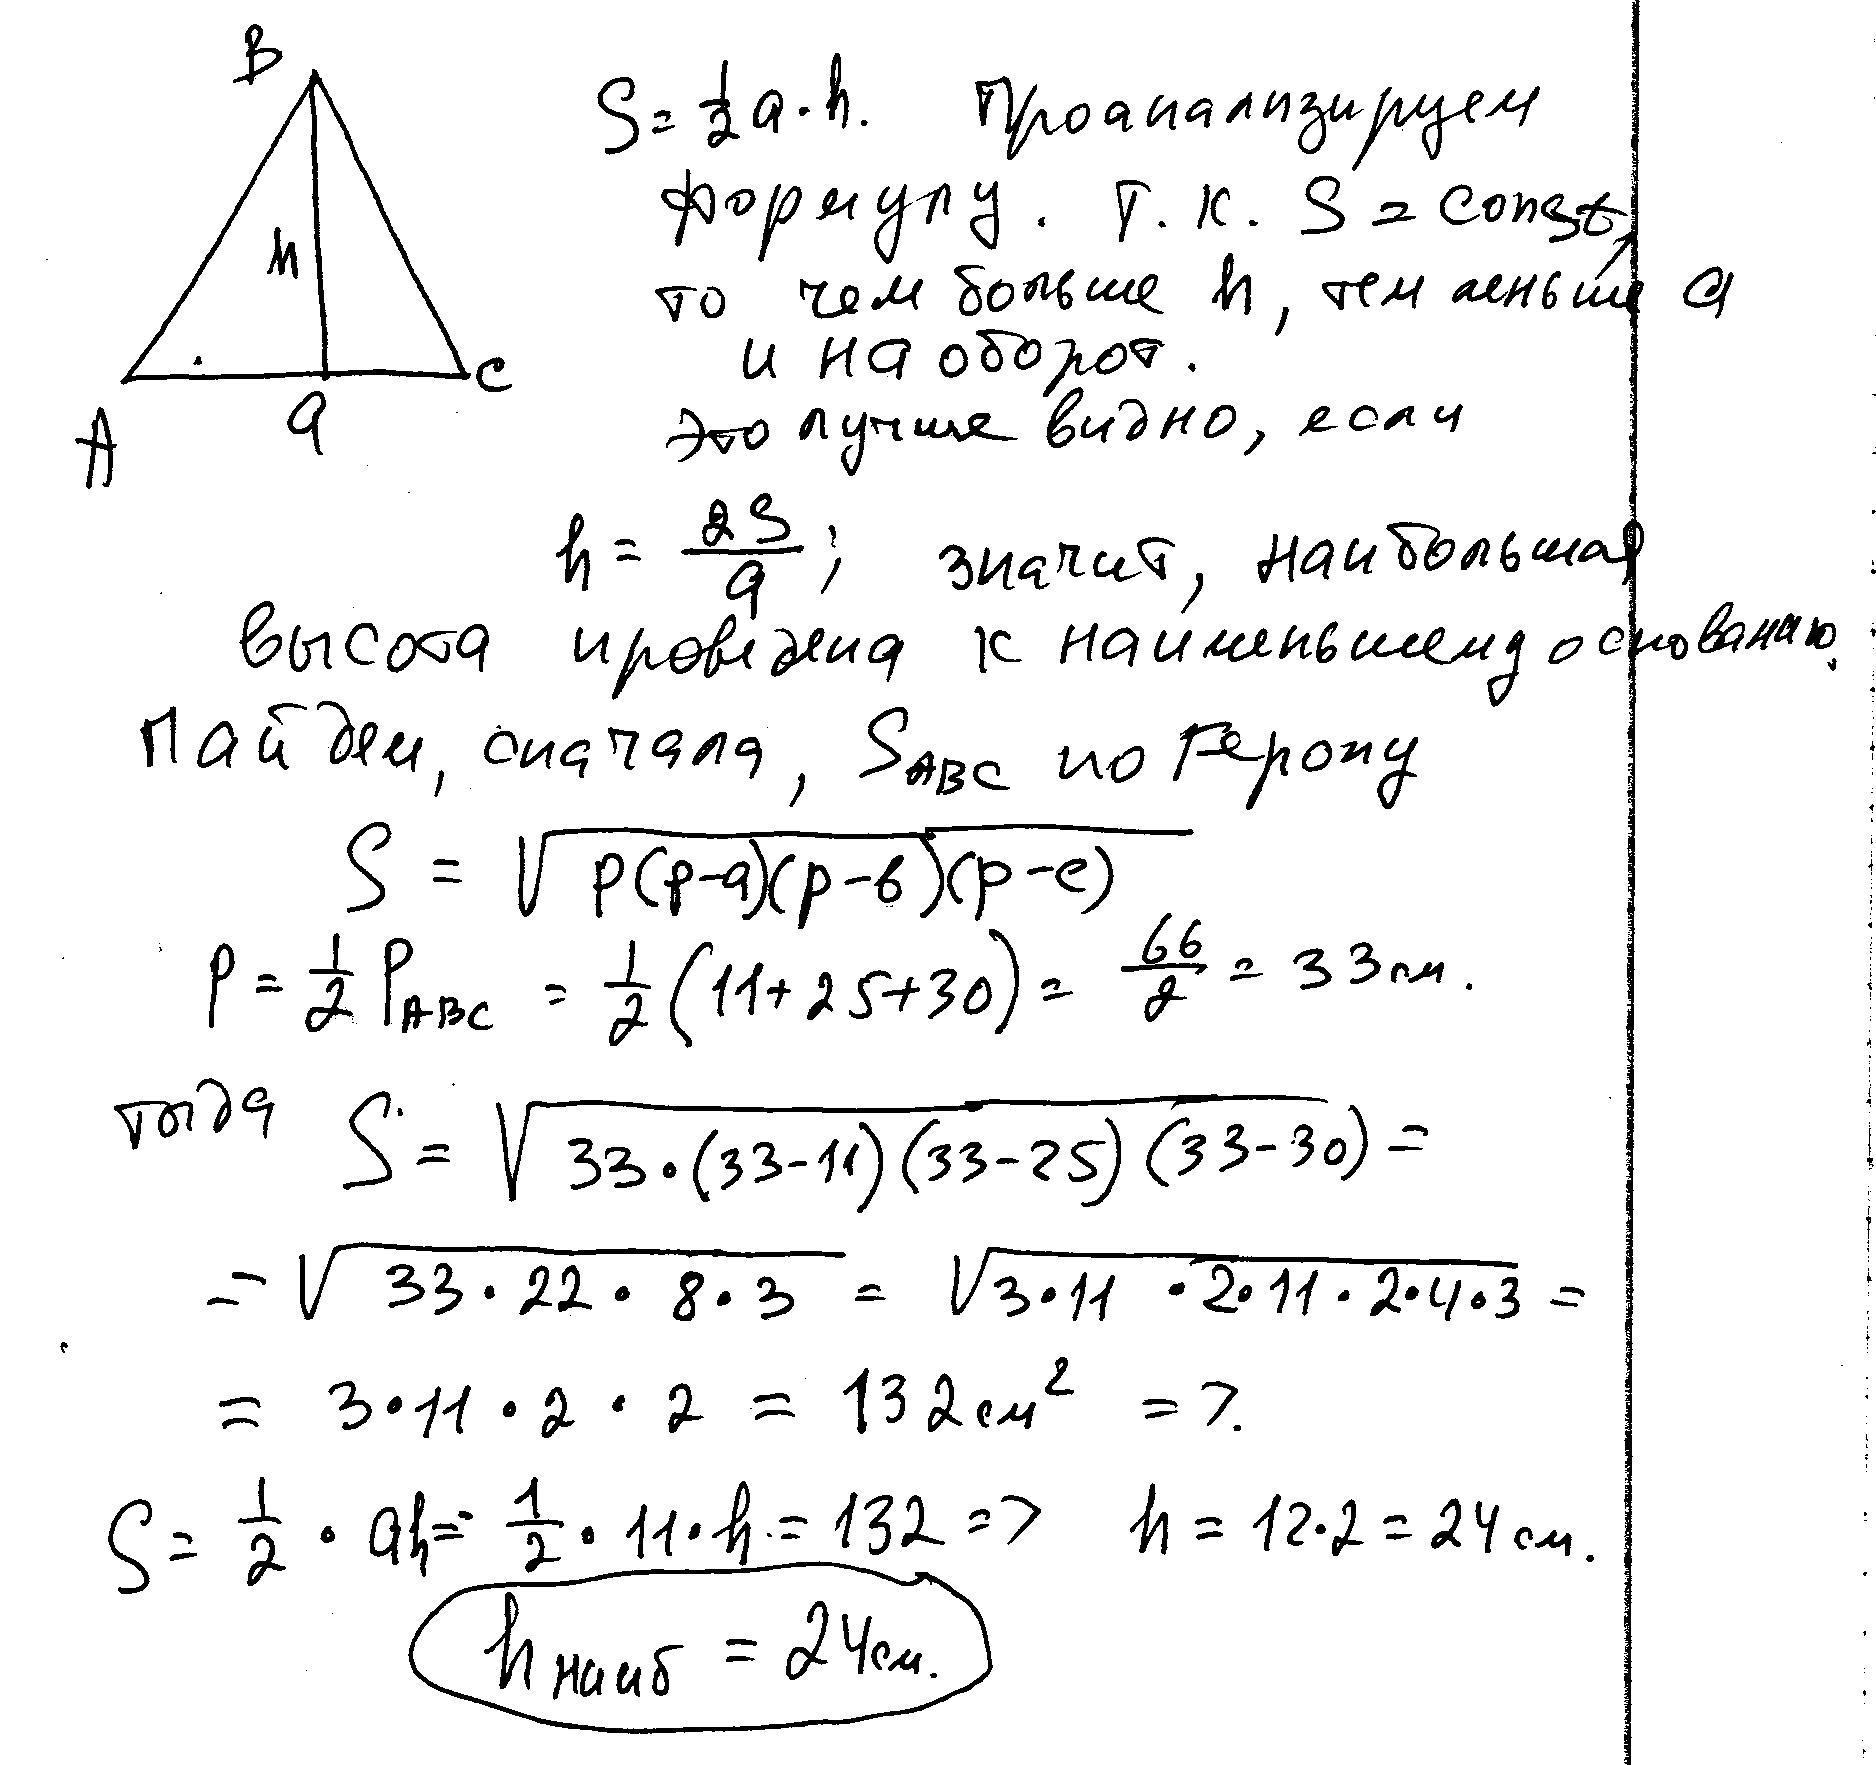 B
h
A
a
C
S = 1/2 a · h. Проанализируем
формулу. Т. к. S = const,
то чем больше h, тем меньше a
и наоборот.
Это лучше видно, если
h = 2S/a ; значит, наибольшая
высота проведена к наименьшему основанию.
Найдем, сначала, S_ABC по Герону
S = √(p(p-a)(p-в)(p-c))
P = 1/2 P_ABC = 1/2 (11+25+30) = 66/2 = 33 см.
тогда S = √(33·(33-11)(33-25)(33-30)) =
= √(33·22·8·3) = √(3·11·2·11·2·4·3) =
= 3·11·2·2 = 132 см² =>.
S = 1/2 · ah = 1/2 · 11·h = 132 => h = 12·2 = 24 см.
h наиб = 24 см.